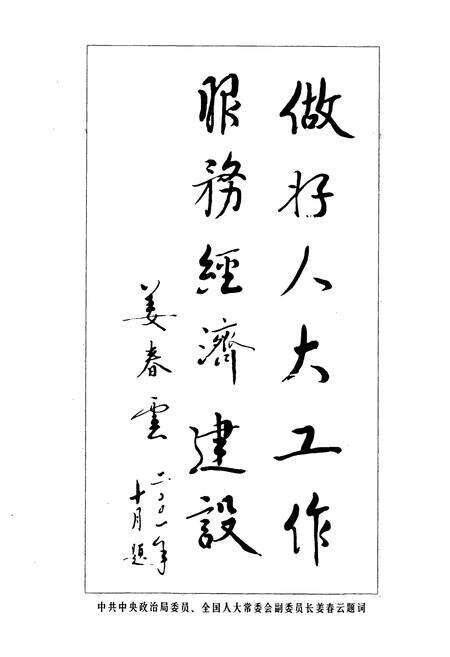 做好人大工作
服務經濟建設
姜春雲
二〇〇一年
十月題
中共中央政治局委员、全国人大常委会副委员长姜春云题词